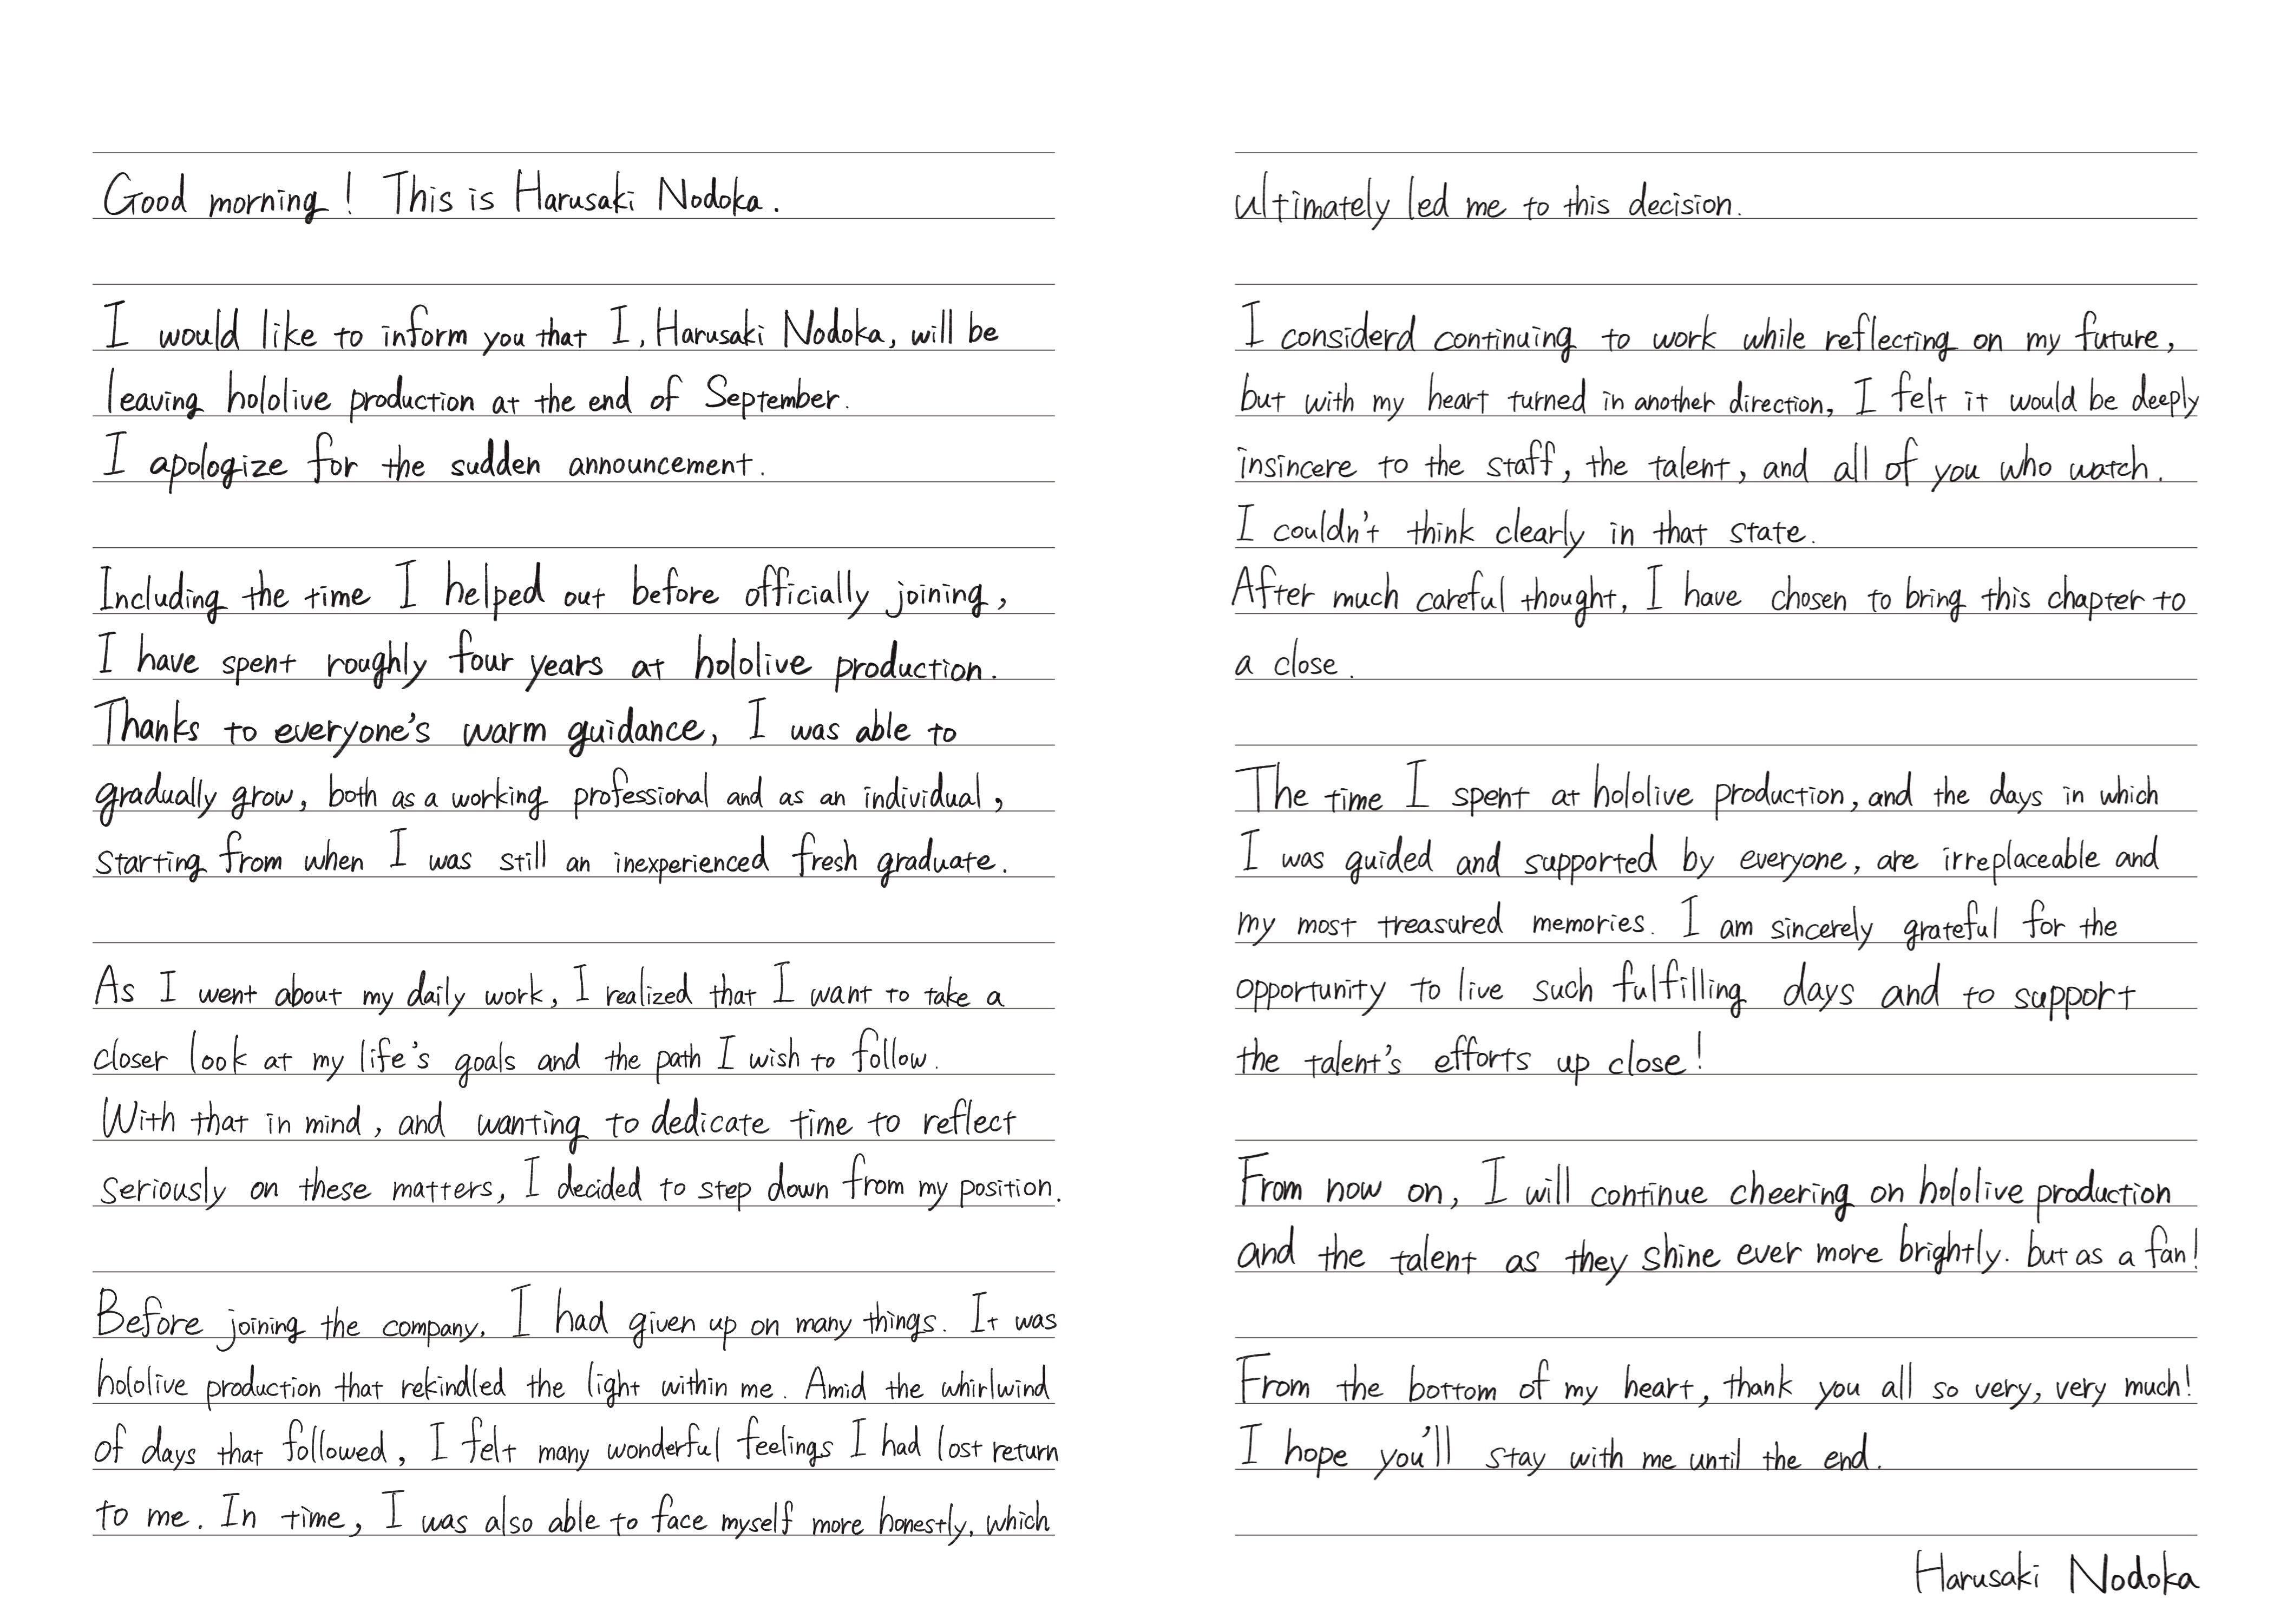 Good morning! This is Harusaki Nodoka.
I would like to inform you that I, Harusaki Nodoka, will be
leaving hololive production at the end of September.
I apologize for the sudden announcement.
Including the time I helped out before officially joining,
I have spent roughly four years at hololive production.
Thanks to everyone's warm guidance, I was able to
gradually grow, both as a working professional and as an individual,
starting from when I was still an inexperienced fresh graduate.
As I went about my daily work, I realized that I want to take a
closer look at my life's goals and the path I wish to follow.
With that in mind, and wanting to dedicate time to reflect
seriously on these matters, I decided to step down from my position.
Before joining the company, I had given up on many things. It was
hololive production that rekindled the light within me. Amid the whirlwind
of days that followed, I felt many wonderful feelings I had lost return
to me. In time, I was also able to face myself more honestly, which
ultimately led me to this decision.
I considerd continuing to work while reflecting on my future,
but with my heart turned in another direction, I felt it would be deeply
insincere to the staff, the talent, and all of you who watch.
I couldn't think clearly in that state.
After much careful thought, I have chosen to bring this chapter to
a close.
The time I spent at hololive production, and the days in which
I was guided and supported by everyone, are irreplaceable and
my most treasured memories. I am sincerely grateful for the
opportunity to live such fulfilling days and to support
the talent's efforts up close!
From now on, I will continue cheering on hololive production
and the talent as they shine ever more brightly. but as a fan!
From the bottom of my heart, thank you all so very, very much!
I hope you'll stay with me until the end.
Harusaki Nodoka